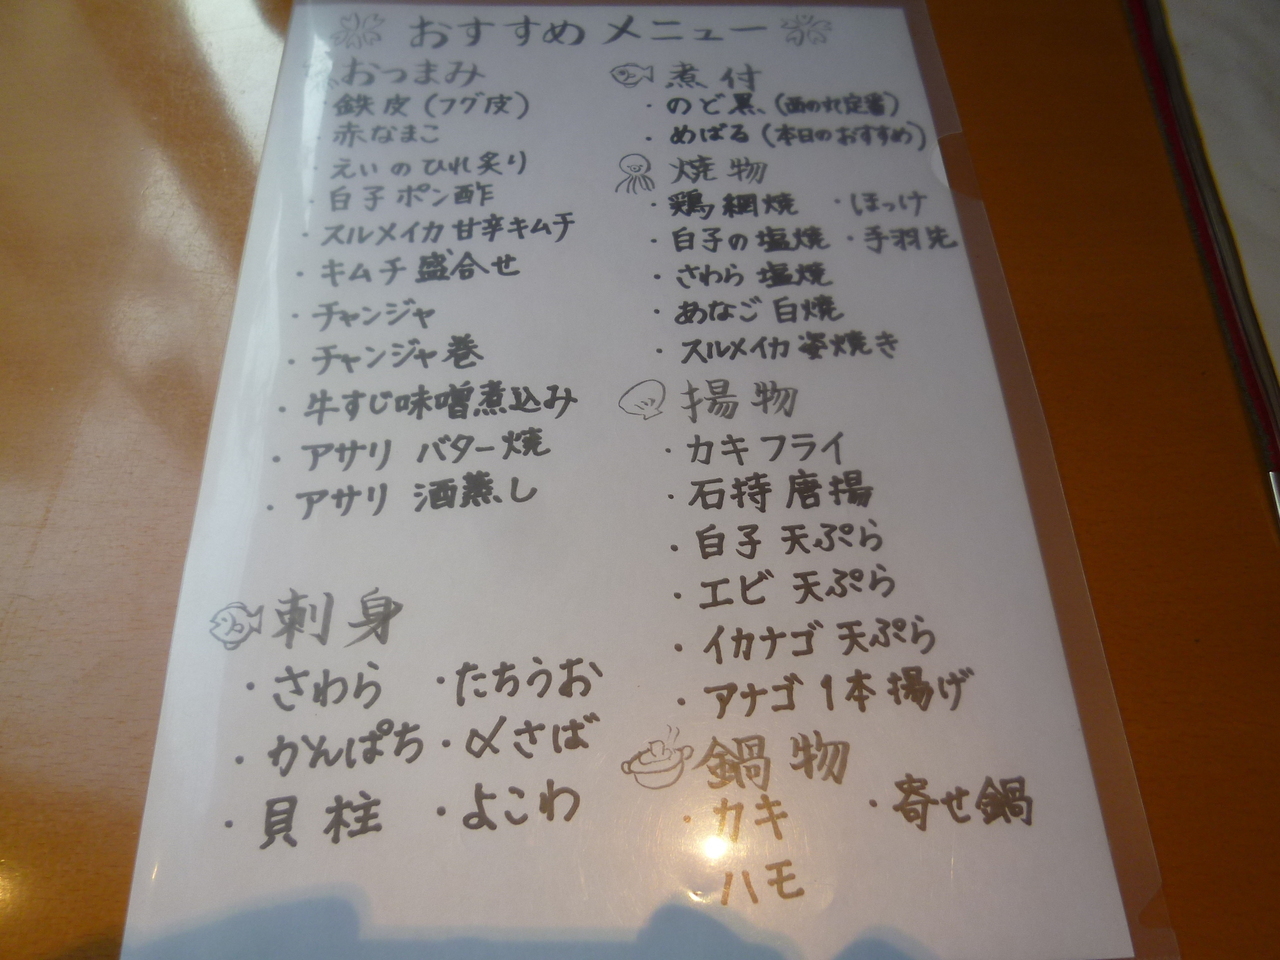 おすすめメニュー
おつまみ
・鉄皮(フグ皮)
・赤なまこ
・えいのひれ炙り
・白子ポン酢
・スルメイカ甘辛キムチ
・キムチ盛合せ
・チャンジャ
・チャンジャ巻
・牛すじ味噌煮込み
・アサリ バター焼
・アサリ 酒蒸し
刺身
・さわら ・たちうお
・かんぱち ・〆さば
・貝柱 ・よこわ
煮付
・のど黒(定番)
・めばる(本日のおすすめ)
焼物
・鶏網焼 ・ほっけ
・白子の塩焼 ・手羽先
・さわら 塩焼
・あなご 白焼
・スルメイカ 姿焼き
揚物
・カキフライ
・石持 唐揚
・白子 天ぷら
・エビ 天ぷら
・イカナゴ 天ぷら
・アナゴ 1本揚げ
鍋物
・カキ ・寄せ鍋
ハモ